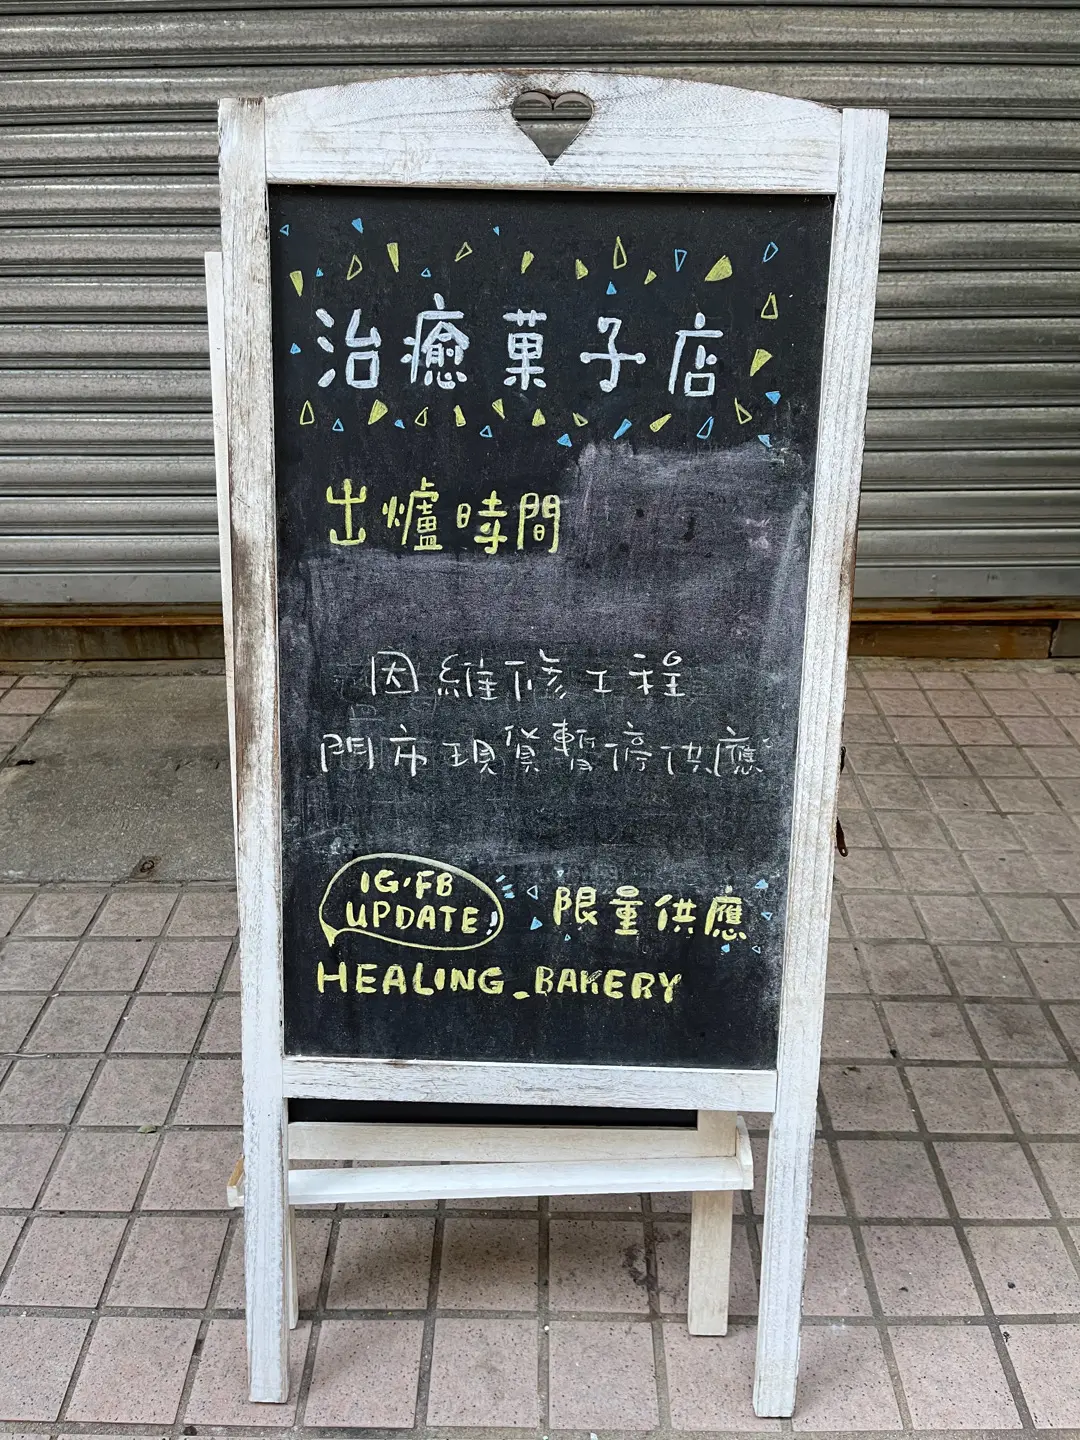 治癒菓子店
出爐時間
因維修工程
門市現貨暫停供應
IG,FB
UPDATE!
限量供應
HEALING_BAKERY